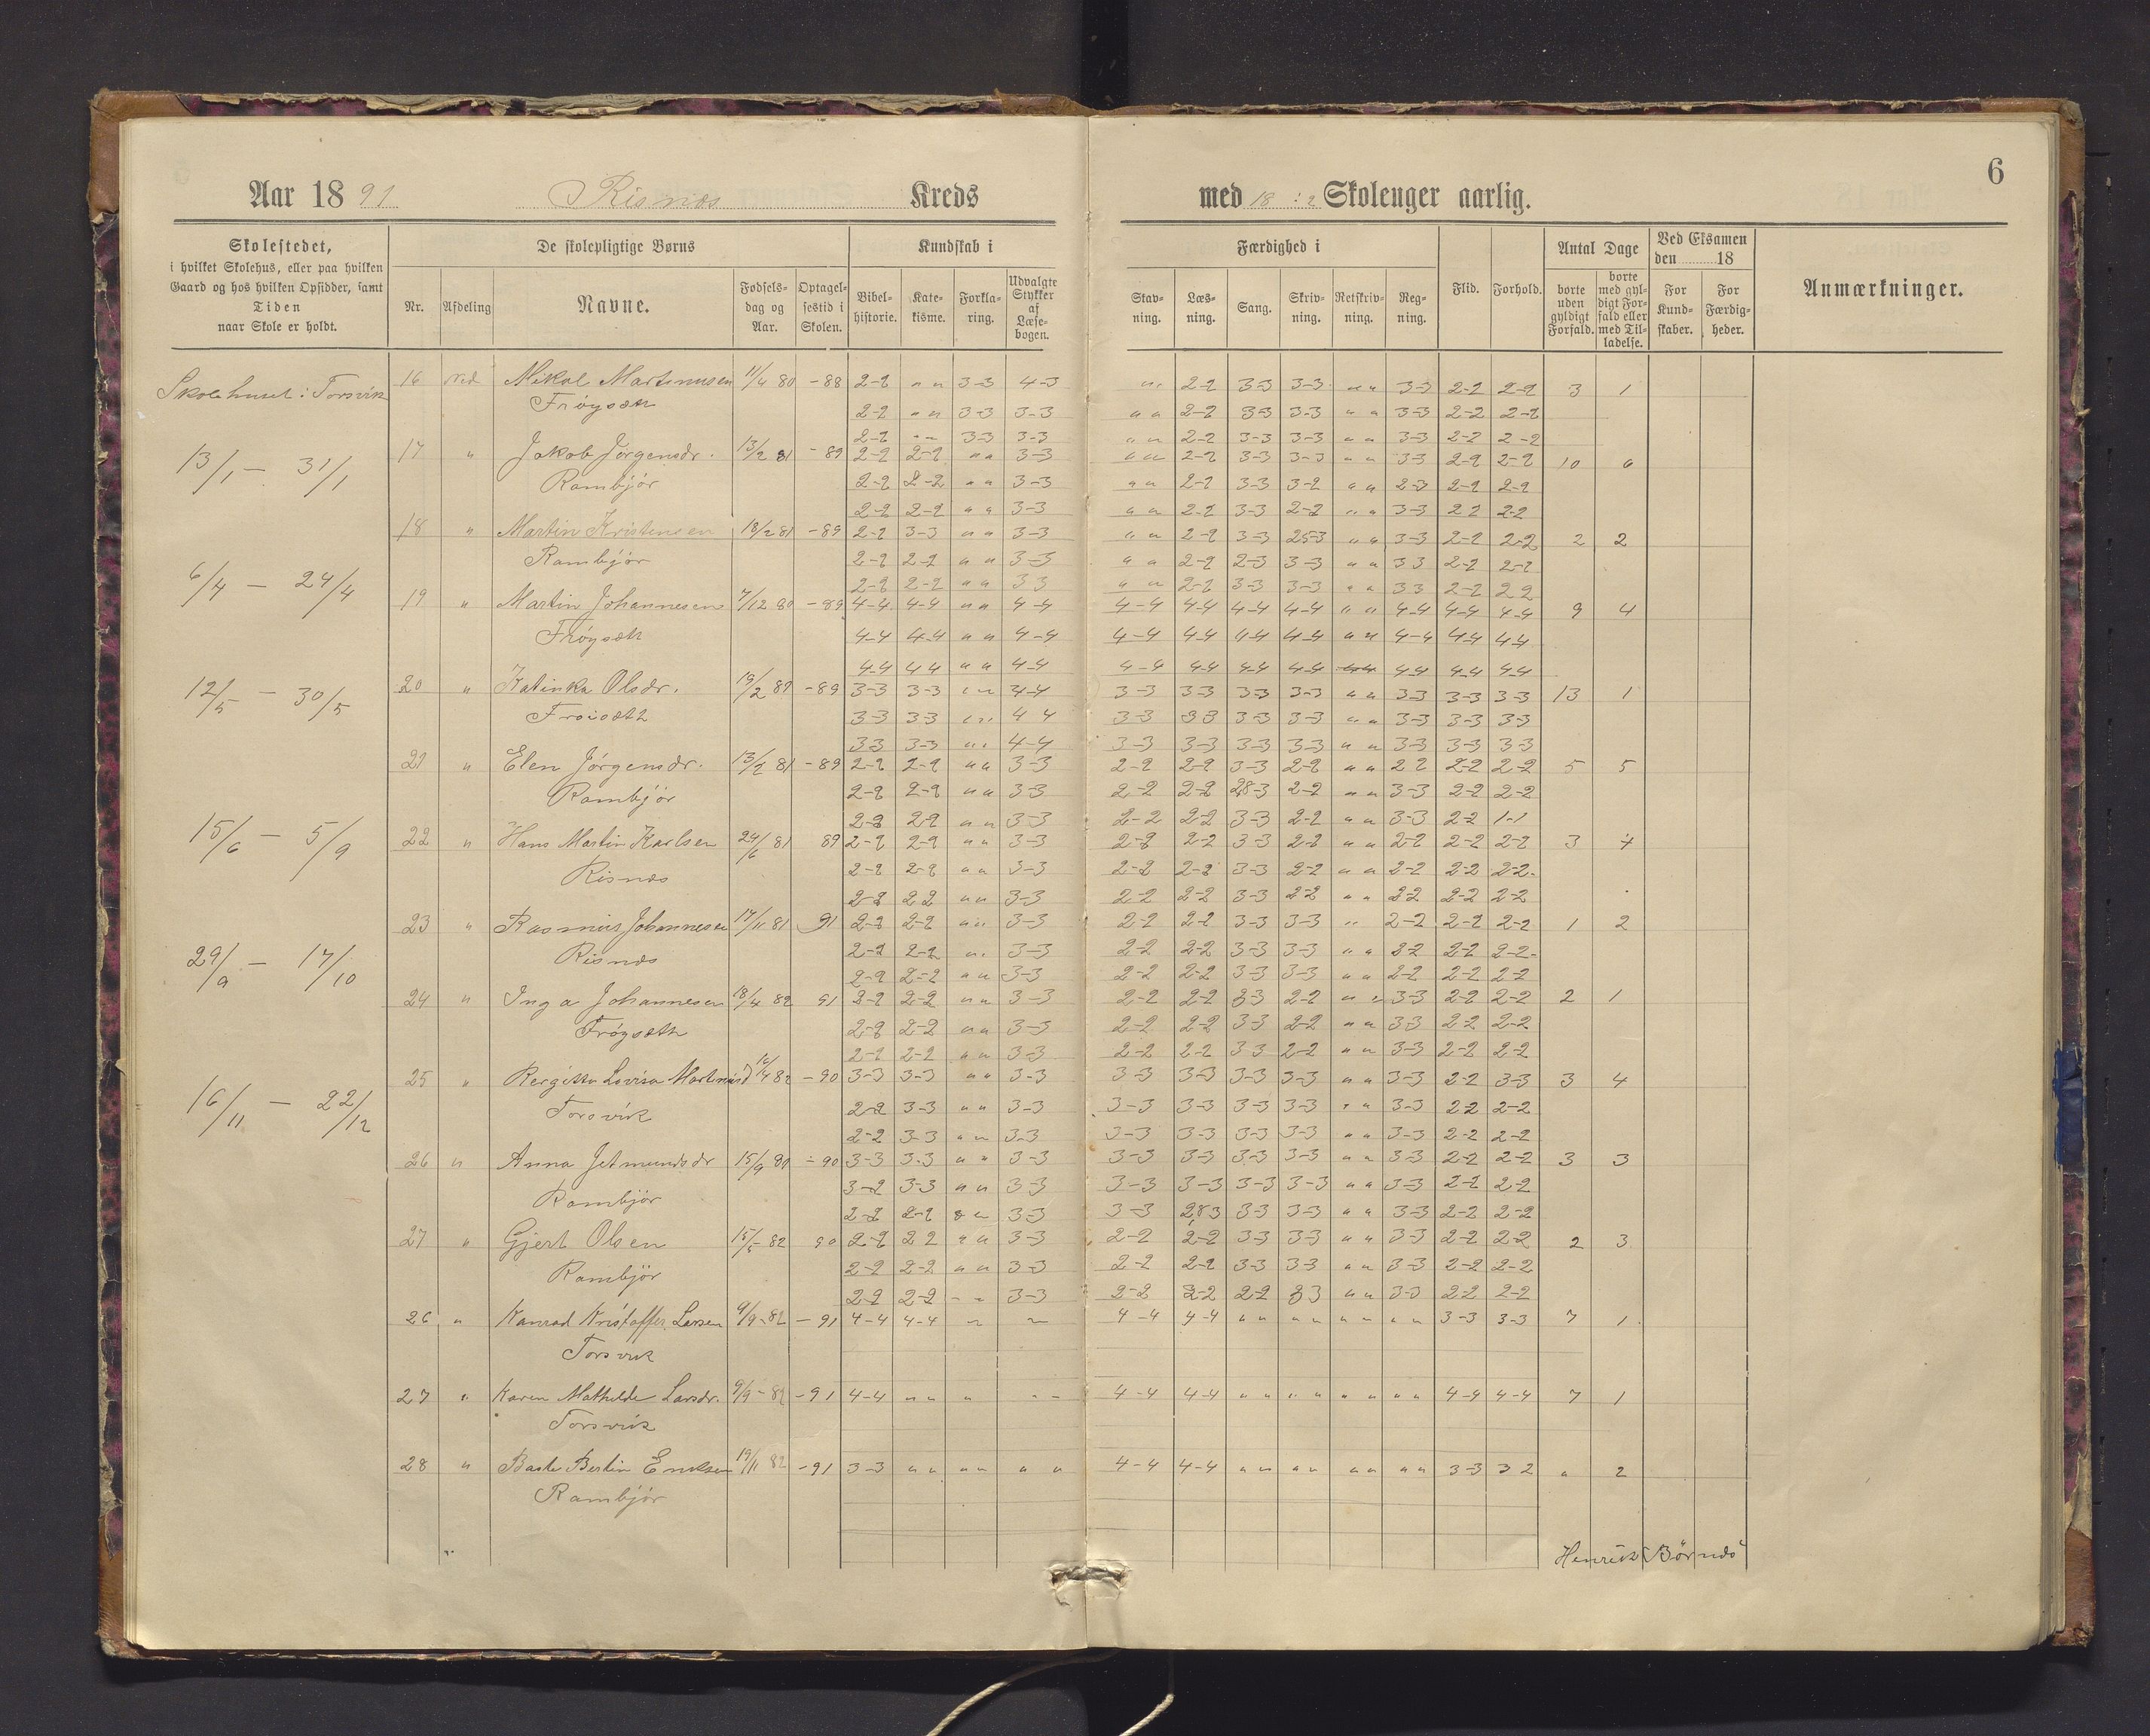 6
Aar 1891 Risnæs Kreds med 18 : 2 Skoleuger aarlig.
Skolestedet, i hvilket Skolehus, eller paa hvilken Gaard og hos hvilken Opsidder, samt Tiden naar Skole er holdt.
De skolepligtige Børns
Nr. Afdeling Navne. Fødsels-dag og Aar. Optagel-sestid i Skolen.
Kundskab i
Bibel-historie. Kate-kisme. Forkla-ring. Udvalgte Stykker af Læse-bogen.
Færdighed i
Stav-ning. Læs-ning. Sang. Skriv-ning. Retskriv-ning. Reg-ning.
Flid. Forhold.
Antal Dage
borte uden gyldigt Forfald. borte med gyl-digt For-fald eller med Til-ladelse.
Ved Eksamen den 18
For Kund-skaber. For Færdig-heder.
Anmærkninger.
Skolehuset: Torsvik
13/1 — 31/1
6/4 — 24/4
12/5 — 30/5
15/6 — 5/9
29/9 — 17/10
16/11 — 22/12
16 Ned Nikol Martinusen 11/4 80 -88 2-2 " " 3-3 4-3 " " 2-2 3-3 3-3 " " 3-3 2-2 2-2 3 1
Frøysæth 2-2 " " 3-3 3-3 " " 2-2 3-3 3-3 " " 3-3 2-2 2-2
2-2 " " 3-3 3-3 " " 2-2 3-3 3-3 " " 3-3 2-2 2-2
17 " Jakob Jørgensdr. 13/2 81 -89 2-2 2-2 " " 3-3 " " 2-2 3-3 3-3 " " 3-3 2-2 2-2 10 6
Rambjør 2-2 2-2 " " 3-3 " " 2-2 3-3 3-2 " " 2-3 2-2 2-2
2-2 2-2 " " 3-3 " " 2-2 3-3 2-2 " " 3-3 2 2 2-2
18 " Martin Kristensen 18/2 81 -89 2-2 3-3 " " 3-3 " " 2-2 3-3 25-3 " " 3-3 2-2 2-2 2 2
Rambjør 2-2 2-2 " " 3-3 " " 2-2 2-3 3-3 " " 3 3 2-2 2-2
2-2 2-2 " " 3 3 " " 2-2 3-3 3-3 " " 3 3 2-2 2 2
19 " Martin Johannesen 7/12 80 -89 4-4 4-4 " " 4-4 4-4 4-4 4-4 4-4 " " 4-4 4-4 4-4 9 4
Frøysæth 4-4 4-4 " " 4-4 4-4 4-4 4-4 4-4 " " 4-4 4-4 4 4
4-4 4 4 " " 4-4 4-4 4-4 4-4 4-4 4-4 4-4 4-4
20 " Katinka Olsdr. 19/2 81 -89 3-3 3-3 " " 4-4 3-3 3-3 3-3 3-3 " " 3-3 3-3 3-3 13 1
Froisæth 3-3 3-3 " " 4 4 3-3 3-3 3-3 3-3 " " 3-3 3-3 3-3
3-3 3-3 " " 4-4 3-3 3-3 3-3 3-3 " " 3-3 3-3 3-3
21 " Elen Jørgensdr. 13/2 81 -89 2-2 2-2 " " 3-3 2-2 2-2 3-3 2-2 " " 2 2 2-2 2-2 5 5
Rambjør 2-2 2-2 " " 3-3 2-2 2-2 2,8-3 2-2 " " 3-3 2-2 2-2
2-2 2-2 " " 3-3 2-2 2-2 3-3 2-2 " " 3-3 2-2 1-1
22 " Hans Martin Karlsen 24/6 81 89 2-2 2-2 " " 3-3 2-2 2-2 3-3 2-2 " " 2-2 2-2 2-2 3 4
Risnæs 2-2 2-2 " " 3-3 2-2 2-2 3-3 2-2 " " 2-2 2-2 2-2
2-2 2 2 " " 3-3 2-2 2-2 3-3 2-2 " " 2-2 2-2 2-2
23 " Rasmus Johannesen 17/11 81 91 2-2 2-2 " " 3-3 2-2 2-2 3-3 3-3 " " 2-2 2-2 2-2 1 2
Risnæs 2-2 2-2 " " 3-3 2-2 2-2 3-3 3-3 " " 2-2 2-2 2-2
2-2 2-2 " " 3-3 2-2 2-2 3-3 3-3 " " 2-2 2-2 2-2
24 " Inga Johannesen 18/4 82 91 2-2 2-2 " " 3-3 2-2 2-2 3-3 2-2 " " 3-3 2-2 2-2 2 1
Frøysæth 2-2 2-2 " " 3-3 2-2 2-2 3-3 2-2 " " 3-3 2-2 2-2
2-2 2-2 " " 3-3 2-2 2-2 3-3 2-2 " " 3-3 2-2 2-2
25 " Bergitta Lovisa Martinusd 16/4 82 -90 3-3 3-3 " " 3-3 3-3 3-3 3-3 3-3 " " 3-3 2-2 3-3 3 4
Torsvik 2-2 3-3 " " 3-3 3-3 3-3 3-3 3-3 " " 3-3 2-2 2-2
2-2 3-3 " " 3-3 3-3 3-3 3-3 3-3 " " 3-3 2-2 2-2
26 " Anna Jetmundsdr 15/9 81 -90 3-3 3-3 " " 3-3 3-3 3-3 3-3 3-3 " " 3-3 2-2 2-2 3 3
Rambjör 3-2 3-3 " " 3-3 3-3 3-3 3-3 3-3 " " 3-3 2-2 2-2
2-2 2-2 " 3-3 3-3 2,8 3 3-3 3-3 " " 3-3 2-2 2-2
27 " Gjert Olsen 15/5 82 90 2-2 2 2 " " 3-3 2-2 2-2 3-3 3-3 " " 3-3 2-2 2-2 2 3
Rambjör 2-2 2-2 " " 3-3 2-2 2-2 3-3 3-3 " " 3-3 2-2 2-2
2-2 2-2 " " 3-3 2-2 2-2 2-2 3 3 " " 3-3 2-2 2-2
26 " Konrad Kristoffer Larsen 9/9-82 -91 4-4 4-4 " " 4-4 4-4 " " " " " " " " 3-3 3-3 7 1
Torsvik
27 " Karen Mathilde Larsdr. 9/9-82 -91 4-4 " " " " " 4-4 4-4 " " " " " " " " 4-4 4-4 7 1
Torsvik
28 " Baste Bertin Eriksen 19/11 82 -91 3-3 " " " " " " 4-4 4-4 " " " " " " " " 3-3 3 2 " 2
Rambjör
Henrik Børnæs